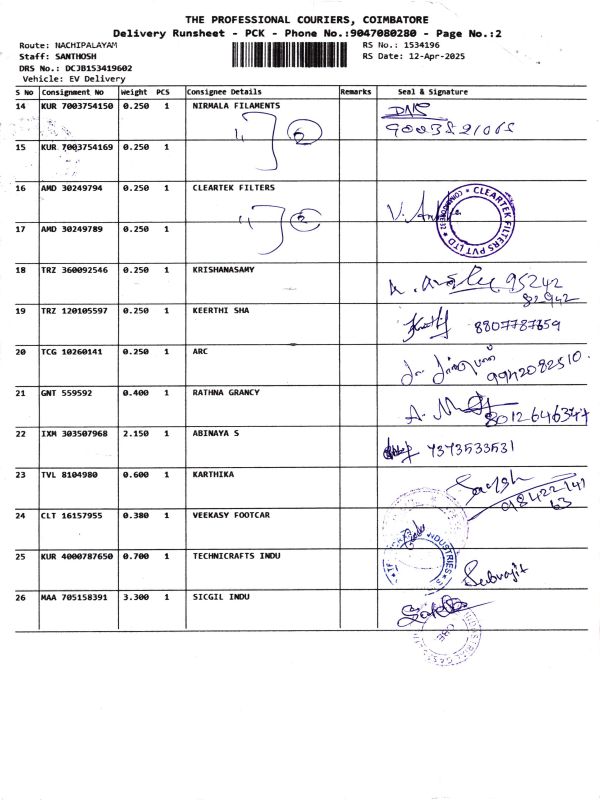 THE PROFESSIONAL COURIERS, COIMBATORE
Delivery Runsheet - PCK - Phone No.:9047080280 - Page No.:2
Route: NACHIPALAYAM
RS No.: 1534196
Staff: SANTHOSH
RS Date: 12-Apr-2025
DRS No.: DCJB153419602
Vehicle: EV Delivery
S No Consignment No Weight PCS Consignee Details Remarks Seal & Signature
14 KUR 7003754150 0.250 1 NIRMALA FILAMENTS
15 KUR 7003754169 0.250 1
16 AMD 30249794 0.250 1 CLEARTEK FILTERS
CLEARTEK FILTERS PVT LTD
17 AMD 30249789 0.250 1
18 TRZ 360092546 0.250 1 KRISHANASAMY 95242
82942
19 TRZ 120105597 0.250 1 KEERTHI SHA 8807787659
20 TCG 10260141 0.250 1 ARC
9942082510.
21 GNT 559592 0.400 1 RATHNA GRANCY
8012646347
22 IXM 303507968 2.150 1 ABINAYA S 7373533531
23 TVL 8104980 0.600 1 KARTHIKA
24 CLT 16157955 0.380 1 VEEKASY FOOTCAR
25 KUR 4000787650 0.700 1 TECHNICRAFTS INDU
INDUSTRIES
26 MAA 705158391 3.300 1 SICGIL INDU